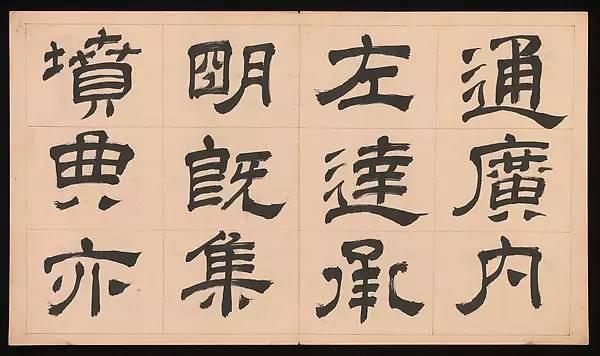 通廣内
左達承
明既集
墳典亦